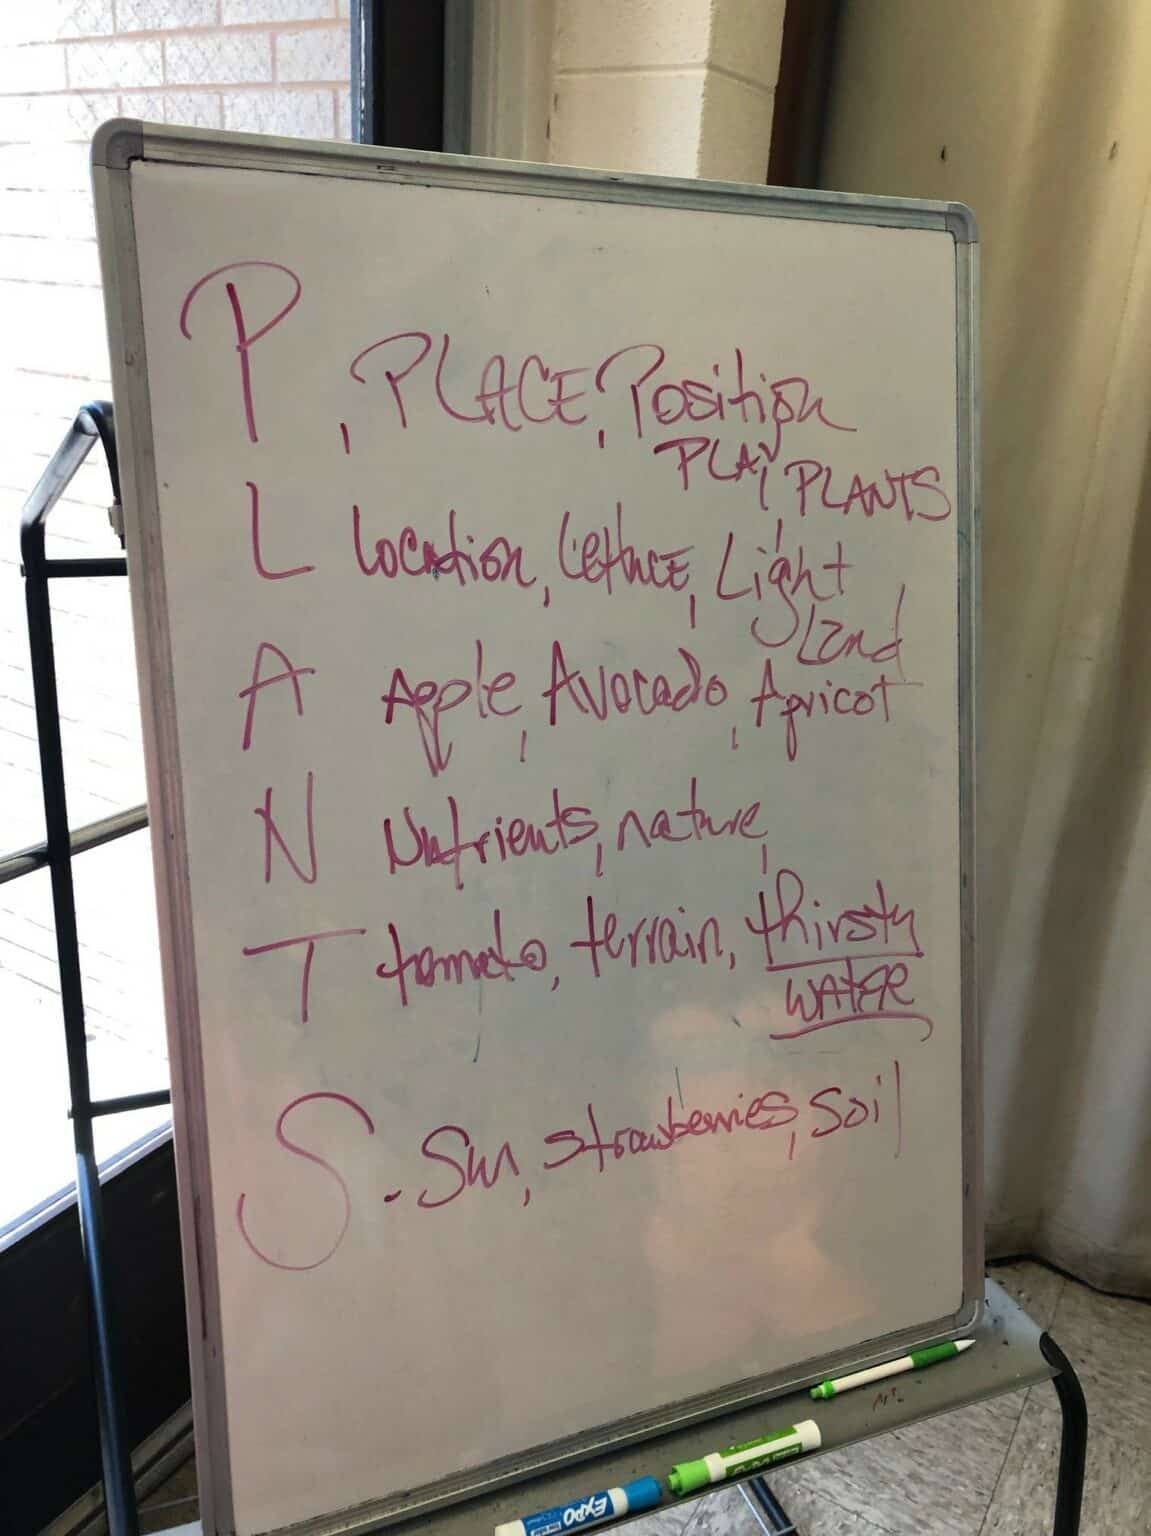 P, PLACE, Position
PLAY, PLANTS
L Location, Lettuce, Light
Land
A Apple, Avocado, Apricot
N Nutrients, nature,
T tomato, terrain, thirsty
WATER
S. Sun, strawberries, soil
EXPO